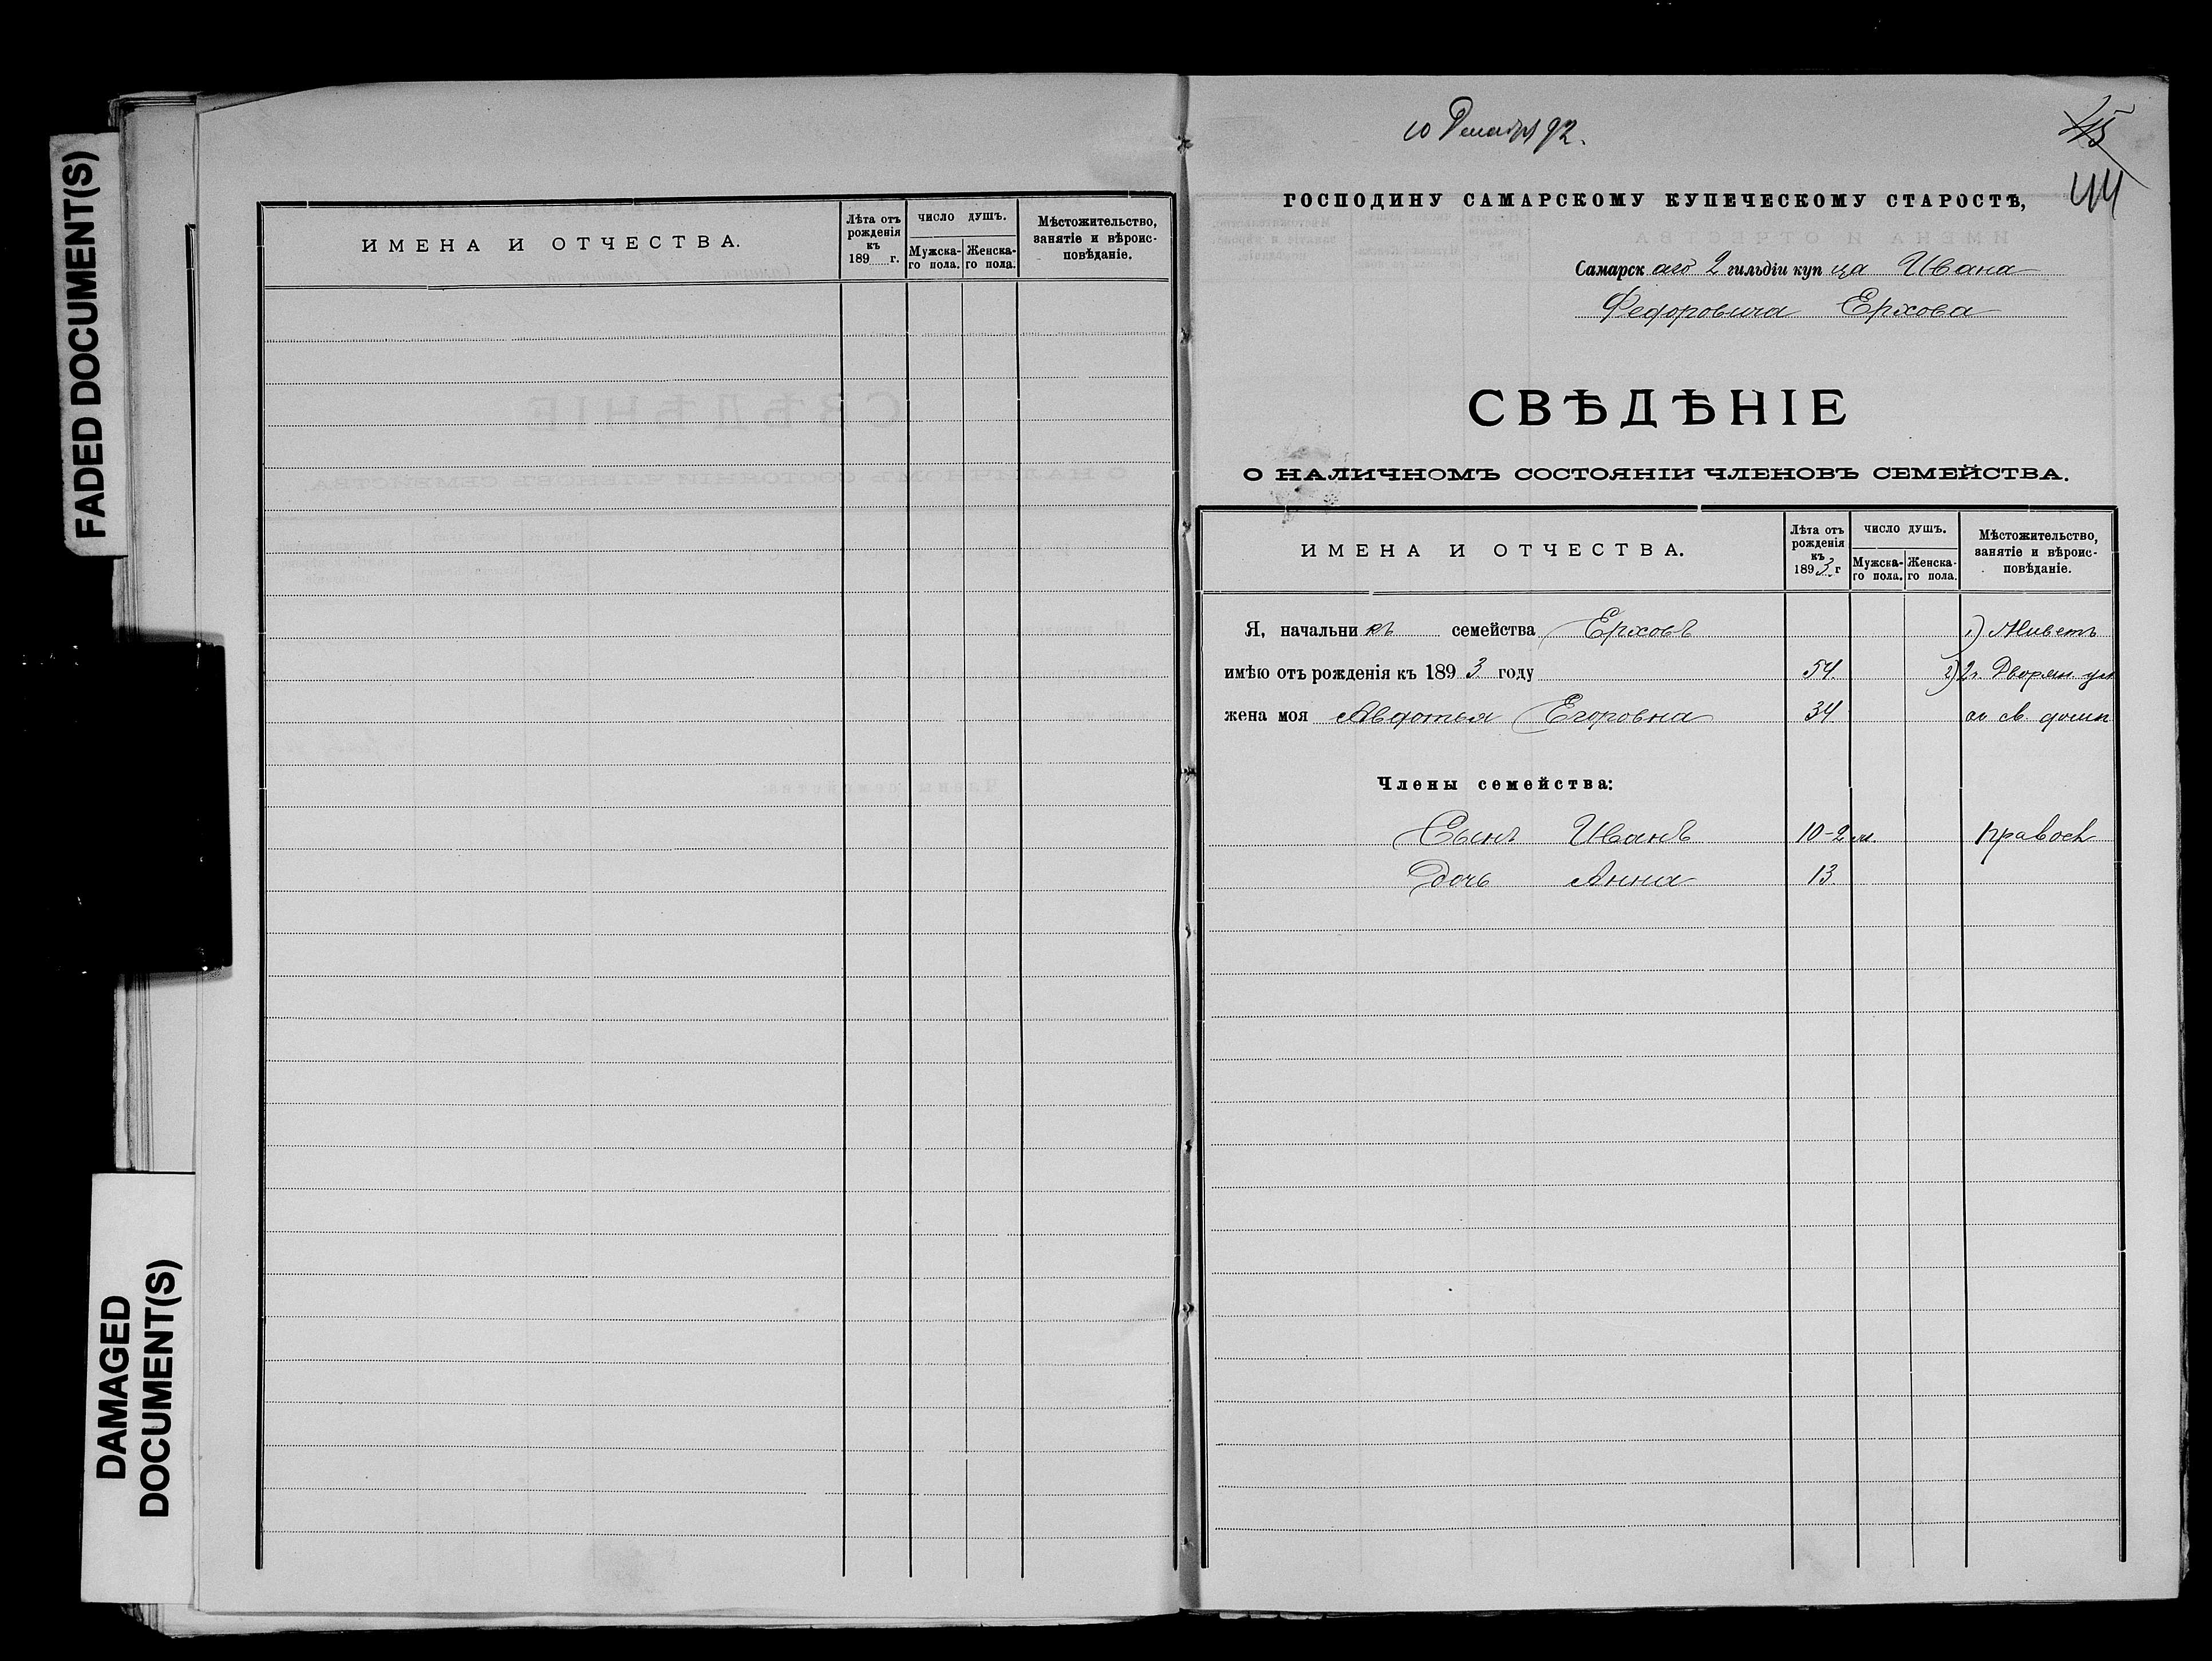 FADED DOCUMENT(S)
DAMAGED
DOCUMENT(S)
ИМЕНА И ОТЧЕСТВА.
Лѣта отъ
рожденія
къ
189 г.
ЧИСЛО ДУШЪ.
Мужска-
го пола.
Женска-
го пола.
Мѣстожительство,
занятіе и вѣроис-
повѣданіе.
10 Декабря 92.
45
44
ГОСПОДИНУ САМАРСКОМУ КУПЕЧЕСКОМУ СТАРОСТѢ,
Самарскаго 2 гильдіи купца Ивана
Федоровича Ерхова
СВѢДѢНІЕ
О НАЛИЧНОМЪ СОСТОЯНІИ ЧЛЕНОВЪ СЕМЕЙСТВА.
ИМЕНА И ОТЧЕСТВА.
Лѣта отъ
рожденія
къ
1893 г
ЧИСЛО ДУШЪ.
Мужска-
го пола.
Женска-
го пола.
Мѣстожительство,
занятіе и вѣроис-
повѣданіе.
Я, начальникъ семейства Ерховъ 1) Живетъ
имѣю отъ рожденія къ 1893 году 54. 2) Дворян. ул
жена моя Авдотья Егоровна 34 св. домѣ
Члены семейства:
Сынъ Иванъ 10-2 м. правосл
Дочь Анна 13.